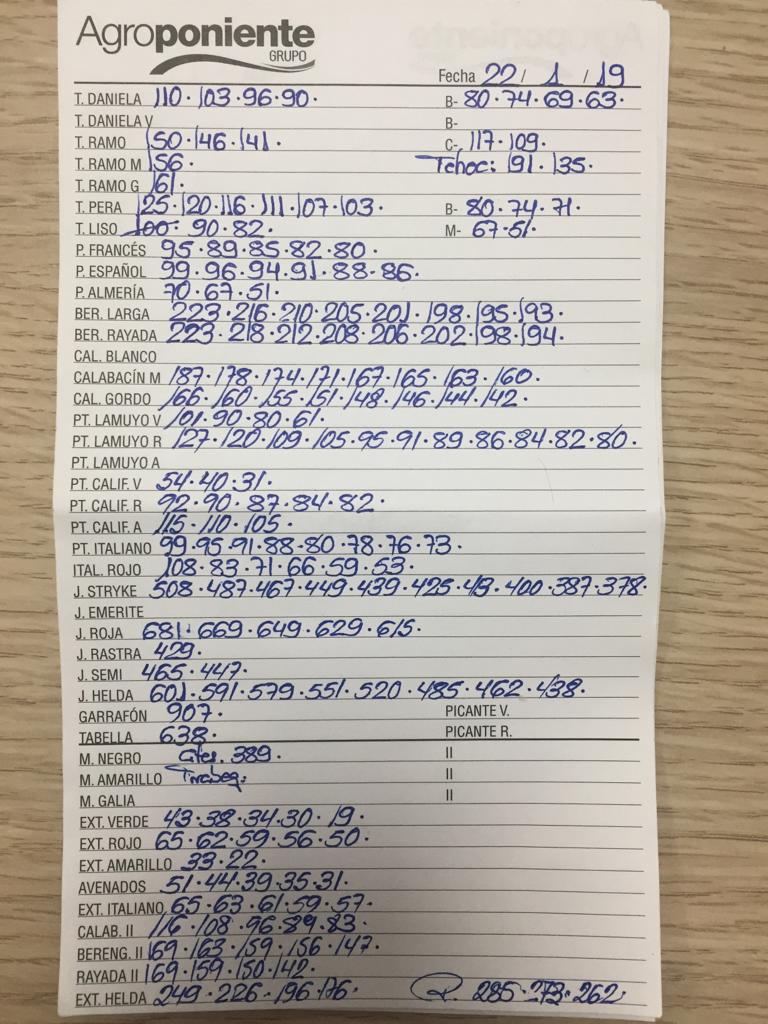 Agroponiente
GRUPO
Fecha 22 / 1 / 19
T. DANIELA 110 · 103 · 96 · 90 · B- 80 · 74 · 69 · 63 ·
T. DANIELA V B-
T. RAMO 150 · 146 · 141 · C- 117 · 109 ·
T. RAMO M 156 · Tchoc: 191 · 135 ·
T. RAMO G 161 ·
T. PERA 125 · 120 · 116 · 111 · 107 · 103 · B- 80 · 74 · 71 ·
T. LISO 100 · 90 · 82 · M- 67 · 51 ·
P. FRANCÉS 95 · 89 · 85 · 82 · 80 ·
P. ESPAÑOL 99 · 96 · 94 · 91 · 88 · 86 ·
P. ALMERÍA 70 · 67 · 51 ·
BER. LARGA 223 · 216 · 210 · 205 · 201 · 198 · 195 · 193 ·
BER. RAYADA 223 · 218 · 212 · 208 · 206 · 202 · 198 · 194 ·
CAL. BLANCO
CALABACÍN M 187 · 178 · 174 · 171 · 167 · 165 · 163 · 160 ·
CAL. GORDO 166 · 160 · 155 · 151 · 148 · 146 · 144 · 142 ·
PT. LAMUYO V 101 · 90 · 80 · 61 ·
PT. LAMUYO R 127 · 120 · 109 · 105 · 95 · 91 · 89 · 86 · 84 · 82 · 80 ·
PT. LAMUYO A
PT. CALIF. V 54 · 40 · 31 ·
PT. CALIF. R 92 · 90 · 87 · 84 · 82 ·
PT. CALIF. A 115 · 110 · 105 ·
PT. ITALIANO 99 · 95 · 91 · 88 · 80 · 78 · 76 · 73 ·
ITAL. ROJO 108 · 83 · 71 · 66 · 59 · 53 ·
J. STRYKE 508 · 487 · 467 · 449 · 439 · 425 · 413 · 400 · 387 · 378 ·
J. EMERITE
J. ROJA 681 · 669 · 649 · 629 · 615 ·
J. RASTRA 429 ·
J. SEMI 465 · 447 ·
J. HELDA 601 · 591 · 579 · 551 · 520 · 485 · 462 · 438 ·
GARRAFÓN 907 · PICANTE V.
TABELLA 638 · PICANTE R.
M. NEGRO 389 · II
M. AMARILLO Tirabeq: II
M. GALIA II
EXT. VERDE 43 · 38 · 34 · 30 · 19 ·
EXT. ROJO 65 · 62 · 59 · 56 · 50 ·
EXT. AMARILLO 33 · 22 ·
AVENADOS 51 · 44 · 39 · 35 · 31 ·
EXT. ITALIANO 65 · 63 · 61 · 59 · 57 ·
CALAB. II 116 · 108 · 96 · 89 · 83 ·
BERENG. II 169 · 163 · 159 · 156 · 147 ·
RAYADA II 169 · 159 · 150 · 142 ·
EXT. HELDA 249 · 226 · 196 · 176 · R. 285 · 273 · 262 ·